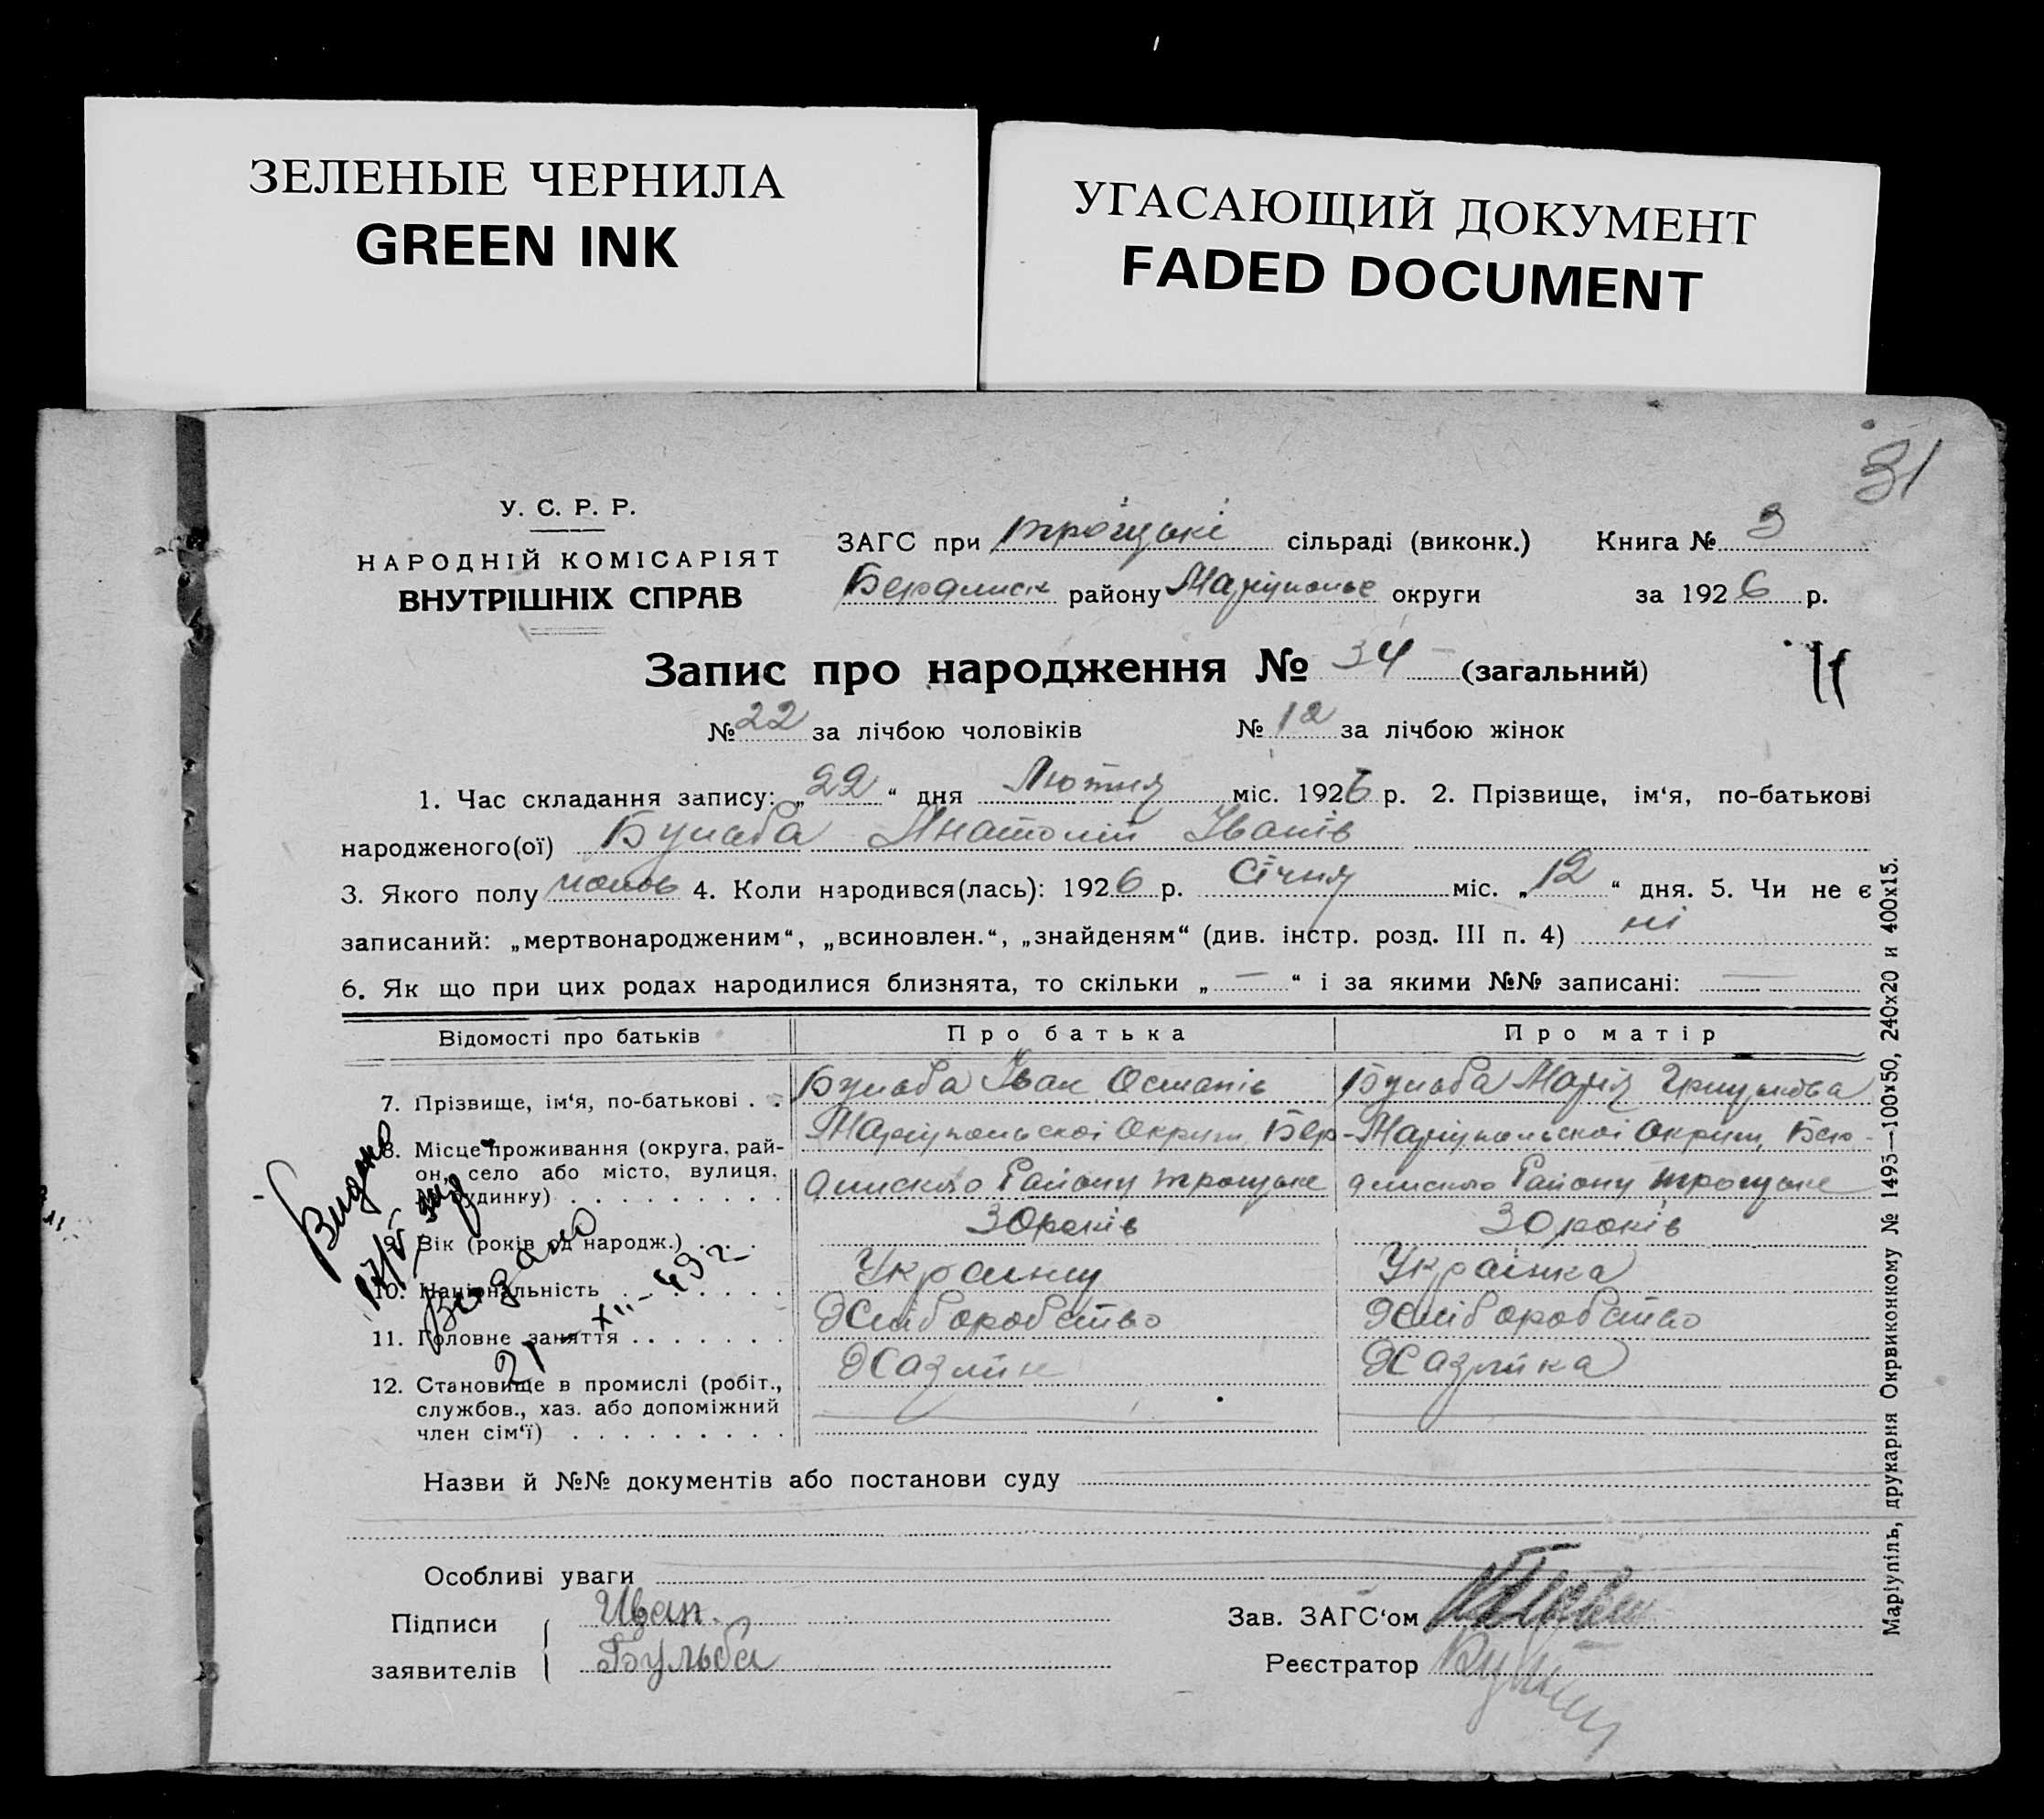 ЗЕЛЕНЫЕ ЧЕРНИЛА
GREEN INK
УГАСАЮЩИЙ ДОКУМЕНТ
FADED DOCUMENT
31
У. С. Р. Р.
НАРОДНІЙ КОМІСАРІЯТ
ВНУТРІШНІХ СПРАВ
ЗАГС при троіцькі сільраді (виконк.) Книга № 3
району Маріупольс округи за 1926 р.
Запис про народження № 34 (загальний)
№ 22 за лічбою чоловіків № 12 за лічбою жінок
1. Час складання запису: „22“ дня Лютня міс. 1926 р. 2. Прізвище, ім‘я, по-батькові
народженого(ої) Бульба Анатолій Іванів
3. Якого полу чолов 4. Коли народився(лась): 1926 р. Січня міс. „12“ дня. 5. Чи не є
записаний: „мертвонародженим“, „всиновлен.“, „знайденям“ (див. інстр. розд. III п. 4) ні
6. Як що при цих родах народилися близнята, то скільки „—“ і за якими №№ записані: —
Відомості про батьків Про батька Про матір
7. Прізвище, ім‘я, по-батькові . . Бульба Іван Остапів Бульба Марія
8. Місце проживання (округа, рай-
он, село або місто, вулиця,
№ будинку) . . . . . . . . .
Маріупольскоі Округи, Бер-
дянского Району троіцьке
Маріупольскоі Округи, Бер-
дянского Району троіцьке
9. Вік (років од народж.) . . . 30 років 30 років
10. Національність . . . . . . . Украінець Украінка
11. Головне заняття . . . . . . . Хліборобство Хліборобство
12. Становище в промислі (робіт.,
службов., хаз. або допоміжний
член сім‘ї) . . . . . . . . .
Хазяін Хазяйка
Видано
Видано
21 – XII – 49 г
Назви й №№ документів або постанови суду
Особливі уваги
Підписи Иван
заявителів Бульба
Зав. ЗАГС‘ом
Реєстратор
Маріупіль, друкарня Окрвиконкому № 1495—100x50, 240x20 и 400x15.